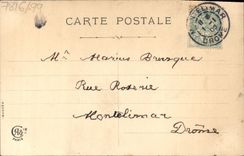 7816/99
CARTE POSTALE
MONTELIMAR
DROME
Mr Marius Brusque
Rue Roserie
Montelimar
Drôme